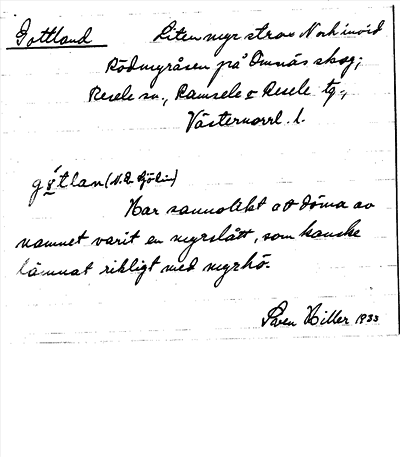 Gottland Liten myr strax N och invid
Rödmyråsen på Omnäs skog;
Resele sn., Ramsele o Resele tg.,
Västernorrl. l.
gótlan (N. E. Sjödin)
Har sannolikt att döma av
namnet varit en myrslått, som kanske
lämnat rikligt med myrhö.
Sven Hiller 1933